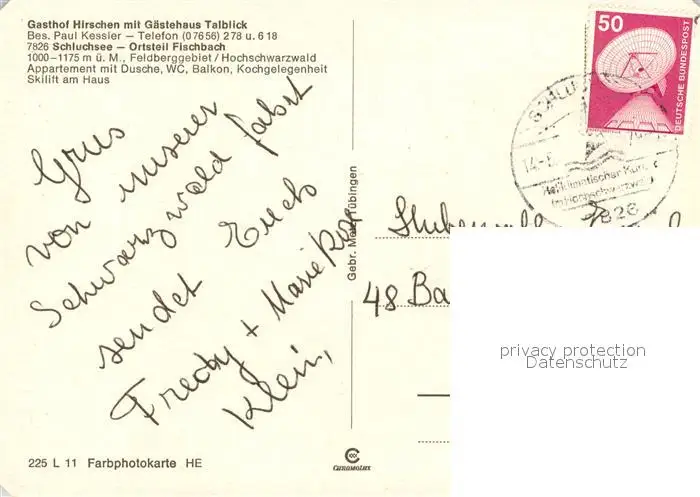 Gasthof Hirschen mit Gästehaus Talblick
Bes. Paul Kessler — Telefon (07656) 278 u. 618
7826 Schluchsee — Ortsteil Fischbach
1000–1175 m ü. M., Feldberggebiet / Hochschwarzwald
Appartement mit Dusche, WC, Balkon, Kochgelegenheit
Skilift am Haus
Grus
von unserer
Schwarzwald fahrt
sendet Euch
Fredy + Marie Rose
Klein,
Gebr. Metz, Tübingen
50
DEUTSCHE BUNDESPOST
Heilklimatischer Kurort
im Hochschwarzwald
7826
48 Ba
privacy protection
Datenschutz
225 L 11 Farbphotokarte HE
CHROMOLUX